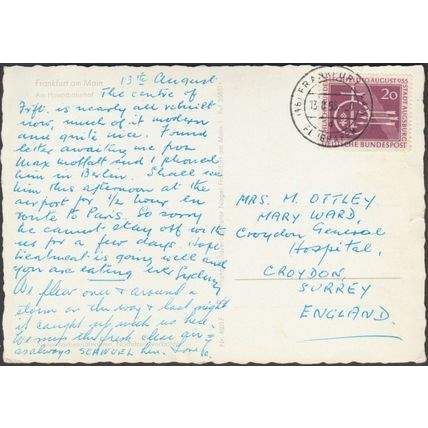 Frankfurt am Main
Am Hauptbahnhof
13th August.
The centre of
Fft. is nearly all rebuilt
now, much of it modern
and quite nice. Found
letter awaiting me from
Max Moffatt and I phoned
him in Berlin. Shall see
him this afternoon at the
airport for 1/2 hour en
route to Paris. So sorry
he cannot stay off with
us for a few days. Hope
treatment is going well and
you are eating ever Sydney
We flew over & around a
storm on the way & last night
it caught up with us here.
We miss the fresh clear air
as always SCHWUEL here. Love
MRS. M. OTTLEY
MARY WARD,
Croydon General
Hospital,
CROYDON,
SURREY
ENGLAND.
FRANKFURT
13.8.55
FLUGHAFEN
10. AUGUST 955
20
STADT AUGSBURG
DEUTSCHE BUNDESPOST